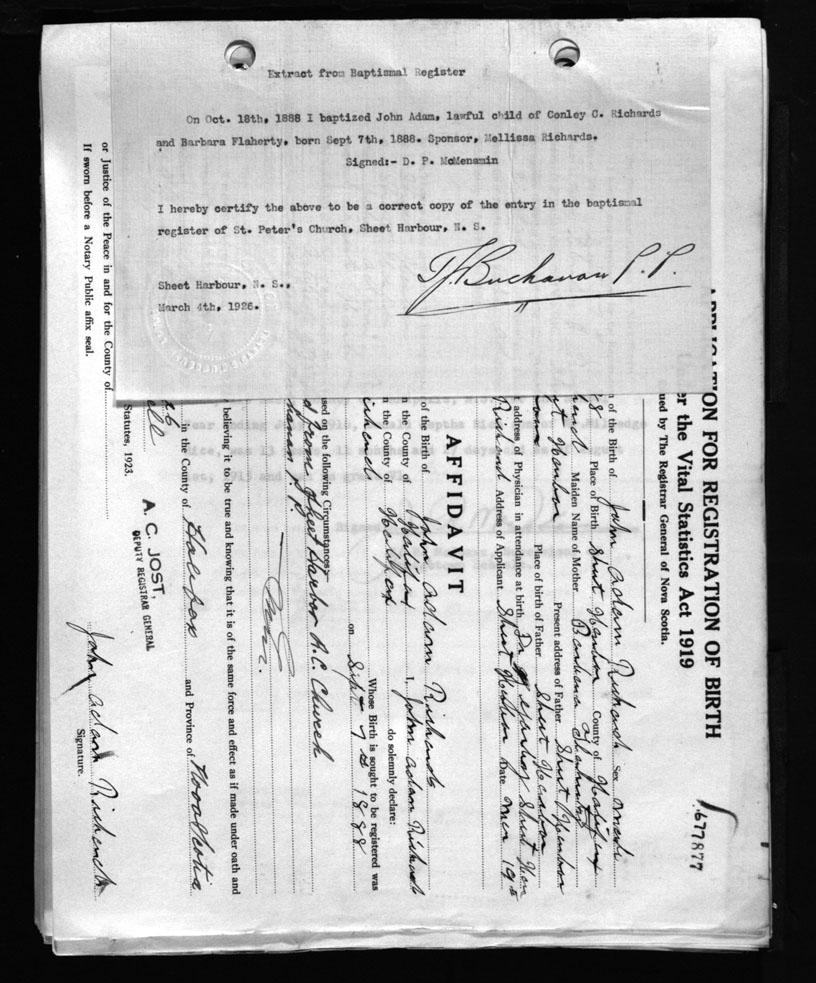 Extract from Baptismal Register
On Oct. 18th, 1888 I baptized John Adam, lawful child of Conley C. Richards
and Barbara Flaherty, born Sept 7th, 1888. Sponsor, Mellissa Richards.
Signed:- D. P. McMenamin
I hereby certify the above to be a correct copy of the entry in the baptismal
register of St. Peter's Church, Sheet Harbour, N. S.
T. J. Buchanan P. P.
Sheet Harbour, N. S.,
March 4th, 1926.
677877
ON FOR REGISTRATION OF BIRTH
er the Vital Statistics Act 1919
ued by The Registrar General of Nova Scotia.
n of the Birth of John Adam Richards Sex Male
78 Place of Birth Sheet Harbor County of Halifax
Maiden Name of Mother Barbara Flaherty
Harbor Present address of Father Sheet Harbor
Place of birth of Father Sheet Harbor
address of Physician in attendance at birth Sheet
Richard Address of Applicant Sheet Harbor Date
AFFIDAVIT
of the Birth of John Adam Richards
n the County of Halifax I, John Adam Richards
n the County of Halifax do solemnly declare:
Whose Birth is sought to be registered was
on Sept 7th 1888
sed on the following Circumstances
d from Sheet Harbor R.C. Church
hanan P.P.
believing it to be true and knowing that it is of the same force and effect as if made under oath and
in the County of Halifax and Province of Nova Scotia
A. C. JOST,
DEPUTY REGISTRAR GENERAL
Statutes, 1923.
John Adam Richards
Signature.
or Justice of the Peace in and for the County of
If sworn before a Notary Public affix seal.